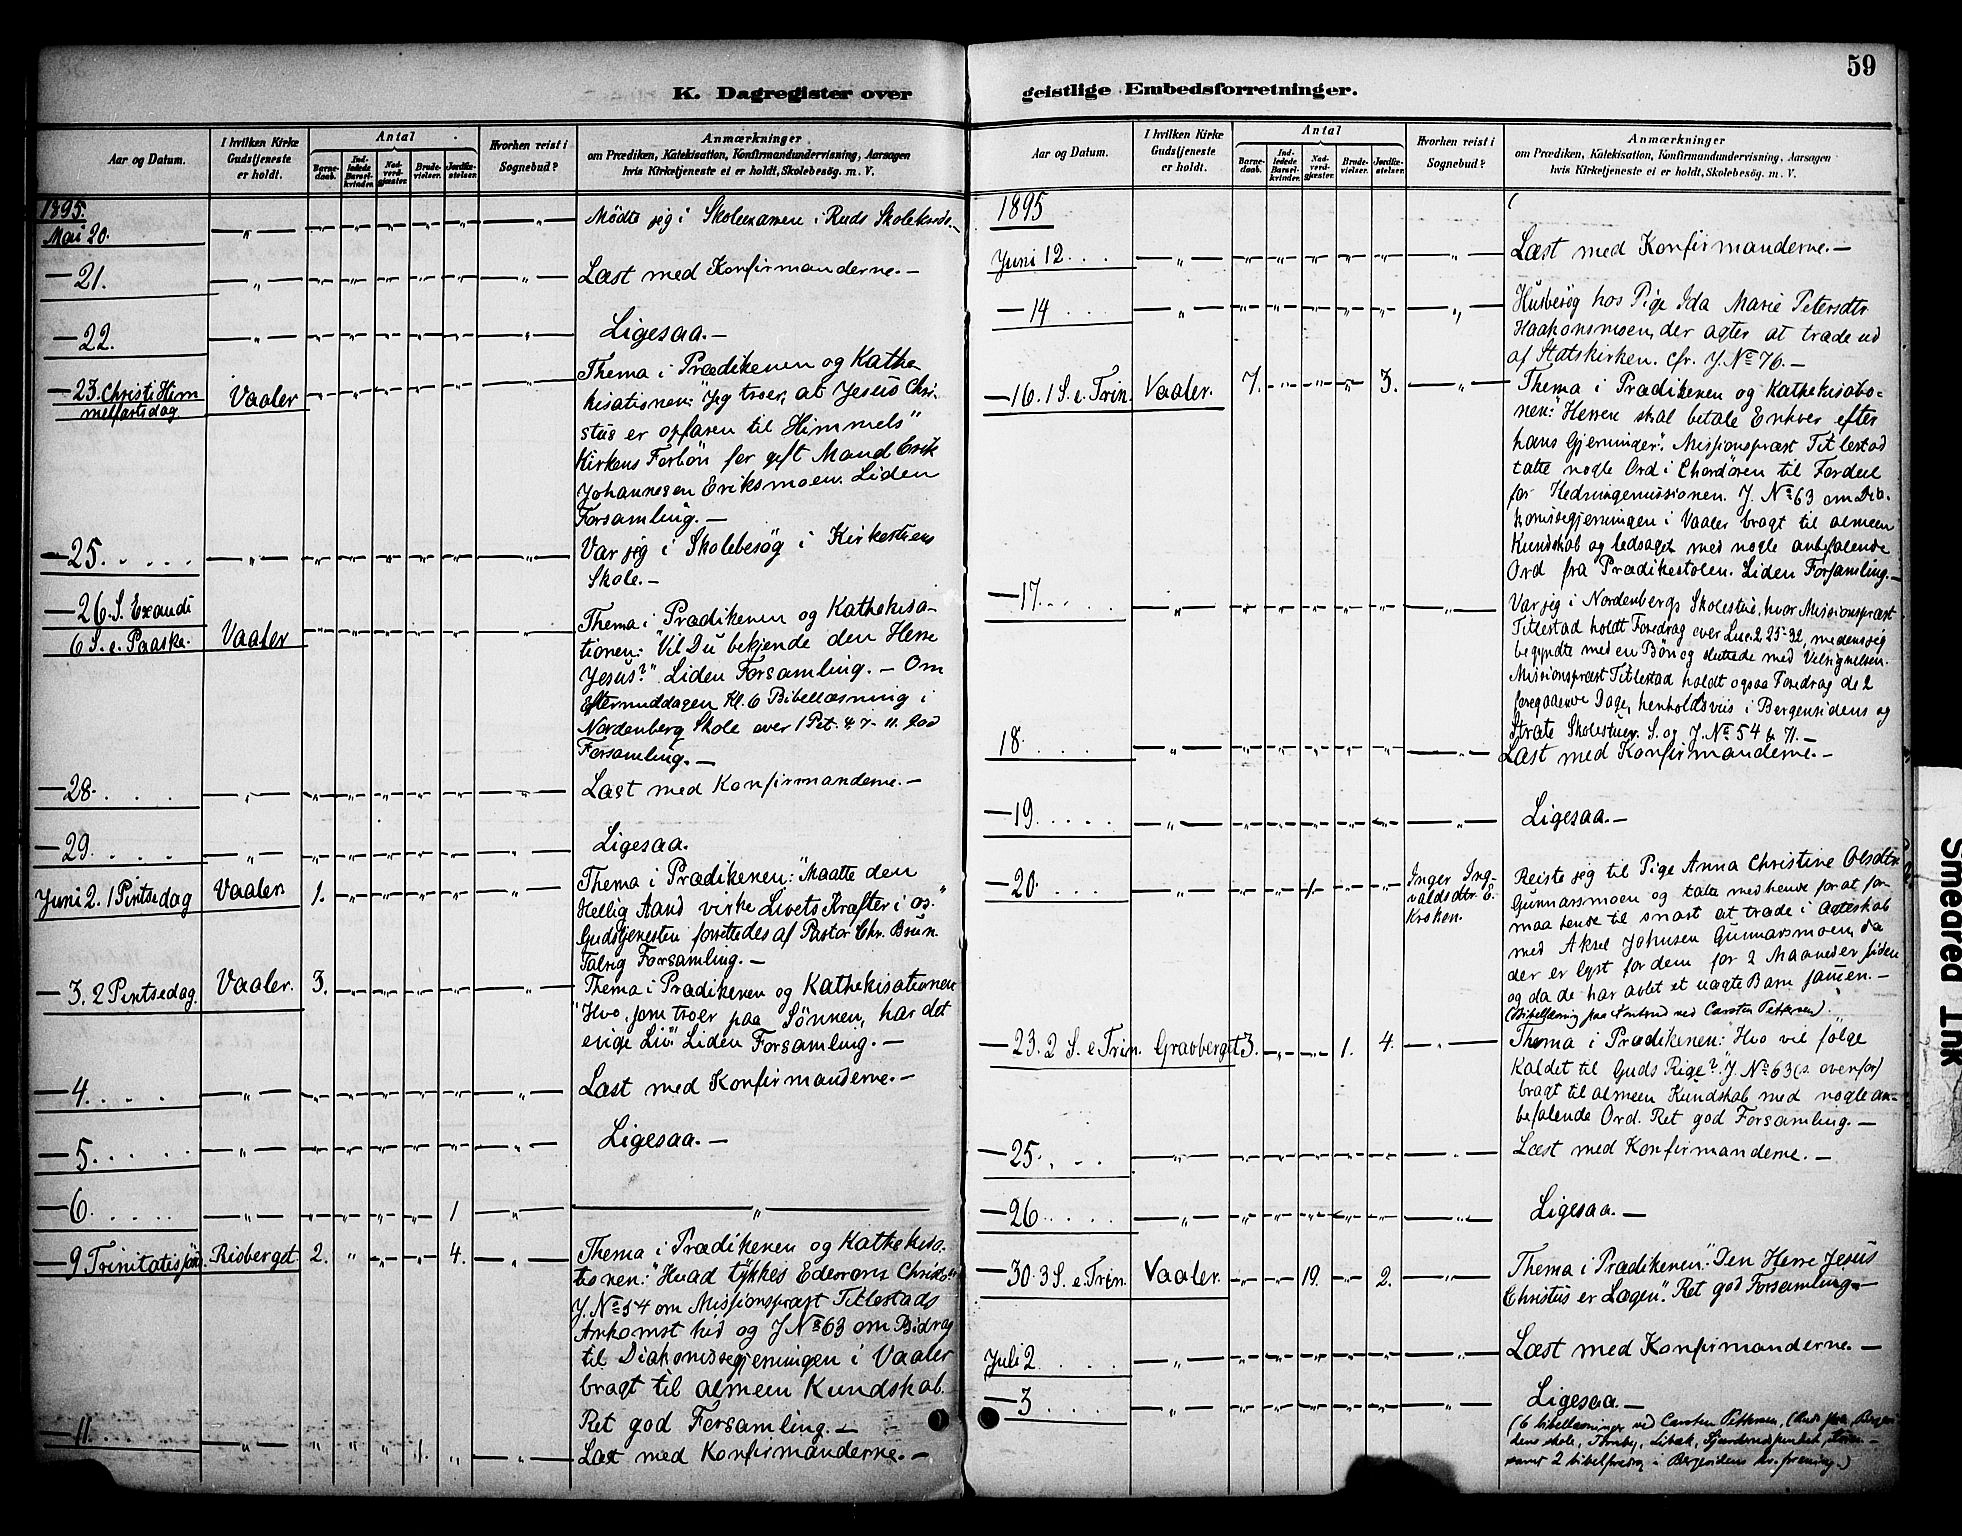 59
K. Dagregister over
geistlige Embedsforretninger.
Aar og Datum.
I hvilken Kirke Gudstjeneste er holdt.
Antal
Barnedaab.
Indledede Barselkvinder.
Nadverdgjæster.
Brudevielser.
Jordfæstelser.
Hvorhen reist i Sognebud?
Anmærkninger
om Prædiken, Katekisation, Konfirmandundervisning, Aarsagen
hvis Kirketjeneste ei er holdt, Skolebesøg. m. V.
1895.
Mai 20. Mødte jeg i Skoleexamen i Ruds Skolekreds.—
—21. Læst med Konfirmanderne.—
—22. Ligesaa.—
—23. Christi Himmelfartsdag Vaaler
Thema i Prædikenen og Kathe-
kisationen: "Jeg troer, at Jesus Chri-
stus er opfaren til Himmels"
Kirkens Forbön for gift Mand Erik
Johannesen Eriksmoen. Liden
Forsamling.—
—25. Var jeg i Skolebesøg i Kirkestiens
Skole.—
—26. S. Exaudi
6 S. e. Paaske. Vaaler
Thema i Prædikenen og Kathekisa-
tionen: "Vil Du bekjende den Herre
Jesus?" Liden Forsamling.— Om
Eftermiddagen Kl. 6 Bibellæsning i
Nordenberg Skole over 1 Pet. 4 7-11. God
Forsamling.—
—28. Læst med Konfirmanderne.—
—29. Ligesaa.
Juni 2. 1 Pintsedag Vaaler 1.
Thema i Prædikenen: "Maatte den
Hellig Aand virke Livets Kræfter i os."
Gudstjenesten forrettedes af Pastor Chr. Brun.
Talrig Forsamling.—
—3. 2 Pintsedag. Vaaler. 3.
Thema i Prædikenen og Kathekisationen
"Hvo, som troer paa Sønnen, har det
evige Liv." Liden Forsamling.—
—4. Læst med Konfirmanderne.—
—5. Ligesaa.—
—6. 1
—9 Trinitatissön. Risberget. 2. 4.
Thema i Prædikenen og Kathekisa-
tionen: "Hvad tykkes Eder om Christo."
J. No 54 om Missionsprest Titlestads
Ankomst hid og J No 63 om Bidrag
til Diakonissegjerningen i Vaaler
bragt til almeen Kundskab.
Ret god Forsamling.—
—11. 1. Læst med Konfirmanderne.—
Aar og Datum.
I hvilken Kirke Gudstjeneste er holdt.
Antal
Barnedaab.
Indledede Barselkvinder.
Nadverdgjæster.
Brudevielser.
Jordfæstelser.
Hvorhen reist i Sognebud?
Anmærkninger
om Prædiken, Katekisation, Konfirmandundervisning, Aarsagen
hvis Kirketjeneste ei er holdt, Skolebesøg. m. V.
1895
Juni 12. Læst med Konfirmanderne.—
—14 Husbesøg hos Pige Ida Marie Petersdtr.
Haakonsmoen, der agter at træde ud
af Statskirken. cfr. J. No 76.—
—16. 1 S. e. Trin. Vaaler. 7. 3.
Thema i Prædikenen og Kathekisatio-
nen: "Herren skal betale Enhver efter
hans Gjerninger". Missionsprest Titlestad
talte nogle Ord i Chordören til Fordeel
for Hedningemissionen. J. No 63 om Dia-
konissegjerningen i Vaaler bragt til almeen
Kundskab og ledsaget med nogle anbefalende
Ord fra Prædikestolen. Liden Forsamling.—
—17. Var jeg i Nordenbergs Skolestue, hvor Missionsprest
Titlestad holdt Foredrag over Luc. 2 25-32, medens jeg
begyndte med en Bön og sluttede med Velsignelsen.
Missionsprest Titlestad holdt ogsaa Foredrag de 2
foregaaende Dage, henholdsvis i Bergensidens og
Strate Skolestuer. S. og J. No 54 & 71.—
18. Læst med Konfirmanderne.—
—19. Ligesaa.—
—20. 1. Inger Ing-
valdsdtr. E.
Kroken.
Reiste jeg til Pige Anna Christine Olsdtr.
Gunnarsmoen og talte med hende for at for-
maa hende til snart at træde i Ægteskab
med Aksel Johnsen Gunnarsmoen, da
der er lyst for dem for 2 Maaneder siden
og da de har avlet et uægte Barn sammen.—
(Bibellæsning paa ved Carsten Pettersen)
—23. 2 S. e Trin. Gravberget 3. 1. 4.
Thema i Prædikenen: "Hvo vil følge
Kaldet til Guds Rige?". J No 63 (s. ovenfor)
bragt til almeen Kundskab med nogle an-
befalende Ord. Ret god Forsamling.—
—25. Læst med Konfirmanderne.—
—26 Ligesaa.—
—30. 3 S. e Trin. Vaaler. 19. 2.
Thema i Prædikenen: "Den Herre Jesus
Christus er Lægen". Ret god Forsamling.—
Juli 2 Læst med Konfirmanderne.—
—3 Ligesaa.—
(6 bibellæsninger ved Carsten Pettersen, Bergen-
dens skole,
samt 2 bibelforedrag i Bergesidens forening.)
Smeared Ink